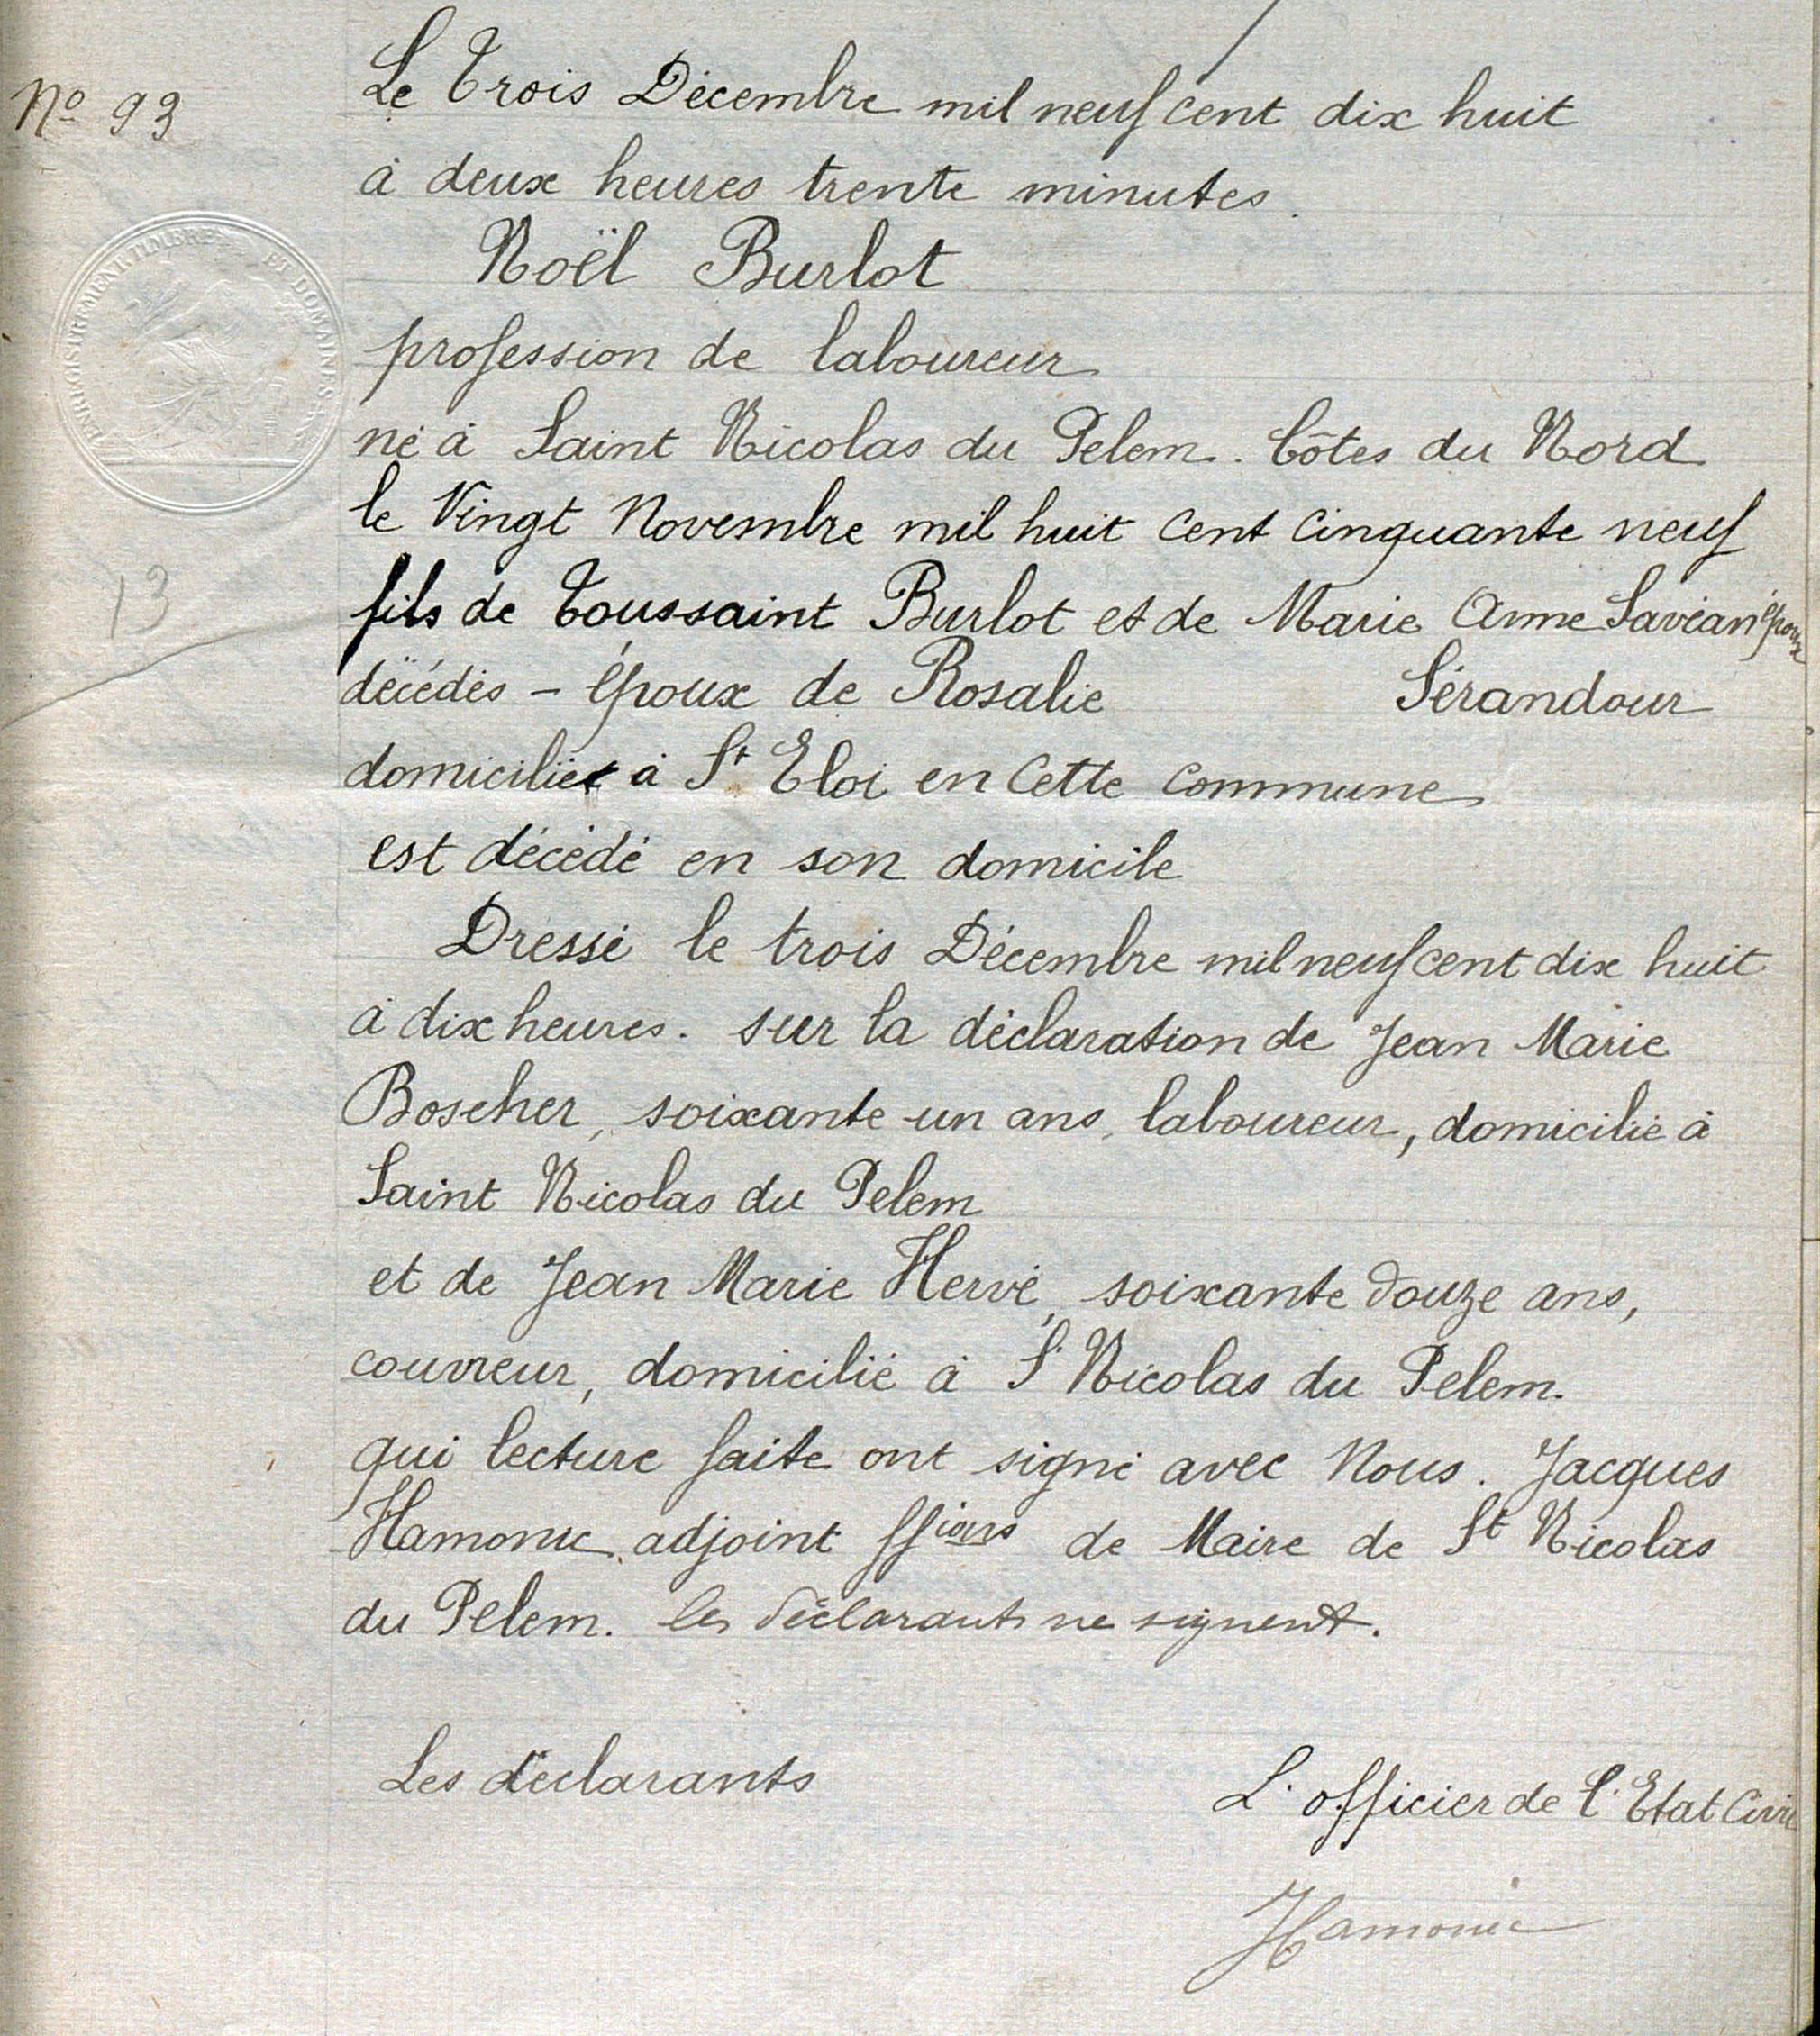 Nº 93
Le Trois Décembre mil neuf cent dix huit
à deux heures trente minutes.
Noël Burlot
profession de laboureur
né à Saint Nicolas du Pelem. Côtes du Nord
le Vingt Novembre mil huit cent cinquante neuf
fils de Toussaint Burlot et de Marie Anne Lavéan époux
décédés – époux de Rosalie Sérandour
domicilié à St Eloi en cette commune
est décédé en son domicile
Dressé le trois Décembre mil neuf cent dix huit
à dix heures. sur la déclaration de Jean Marie
Boscher, soixante un ans, laboureur, domicilié à
Saint Nicolas du Pelem
et de Jean Marie Hervé, soixante douze ans,
couvreur, domicilié à St Nicolas du Pelem.
qui lecture faite ont signé avec Nous. Jacques
Hamonic adjoint ffions de Maire de St Nicolas
du Pelem. les déclarants ne signent.
Les déclarants
L'officier de l'Etat Civil
Hamonic
13
ENREGISTREMENT TIMBRE ET DOMAINES